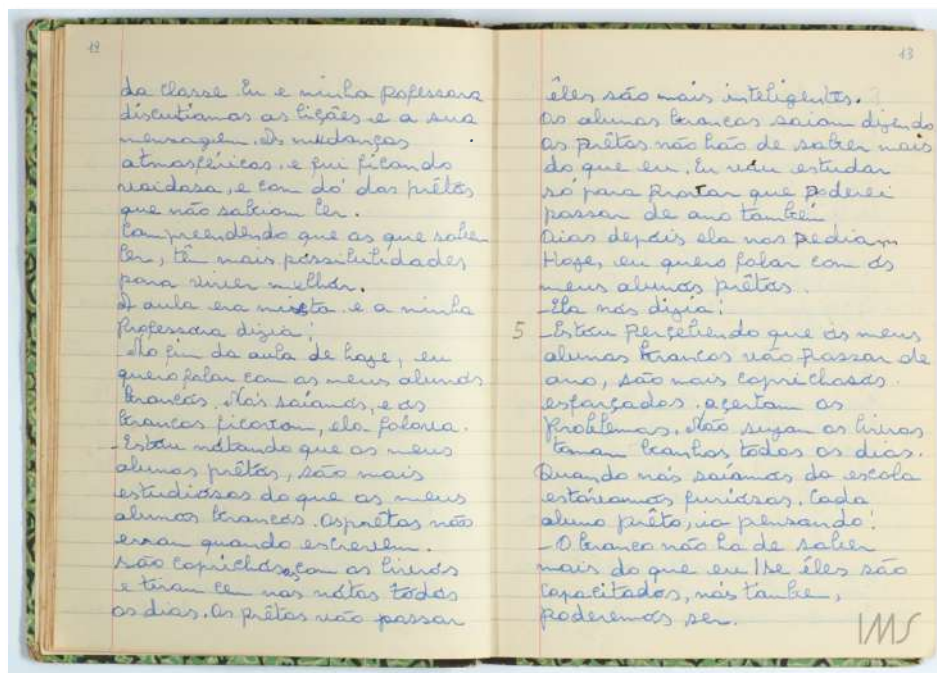 12
da classe. Eu e minha pofessora
discutiamos as lições e a sua
mensagem. As mudanças
atmosféricas, e fui ficando
vaidosa, e com dó dos prêtos
que não sabiam ler.
Compreendendo que os que sabem
ler, tê mais possibilidades
para viver melhor.
A aula era mista e a minha
professora dizia:
-No fim da aula de hoje, eu
quero falar com os meus alunos
brancos. Nós saiamos, e os
brancos ficavam, ela falava.
-Estou nótando que os meus
alunos prêtos, são mais
estudiósos do que os meus
alunos brancos. Os prêtos não
erram quando escrevem.
são caprichósos com os livros
e tiram cem nas nótas todos
os dias. Os prêtos vão passar
13
êles são mais inteligentes.
Os alunos brancos saiam dizendo
os prêtos não hão de saber mais
do que eu. Eu vou estudar
só para provar que poderei
passar de ano tambêi
Dias depois ela nos pediam
Hoje, eu quero falar com os
meus alunos prêtos.
-Ela nos dizia:
5 -Estou perçebendo que os meus
alunos brancos vão passar de
ano, são mais caprichosos.
esforçados. açertam os
problemas. Não sujam os livros
tomam banhos todos os dias.
Quando nós saíamos da escola
estávamos furiósos. Cada
aluno prêto, ia pensando:
-O branco não ha de saber
mais do que eu! se êles são
capacitados, nós tambe,
poderemos ser.
IMS